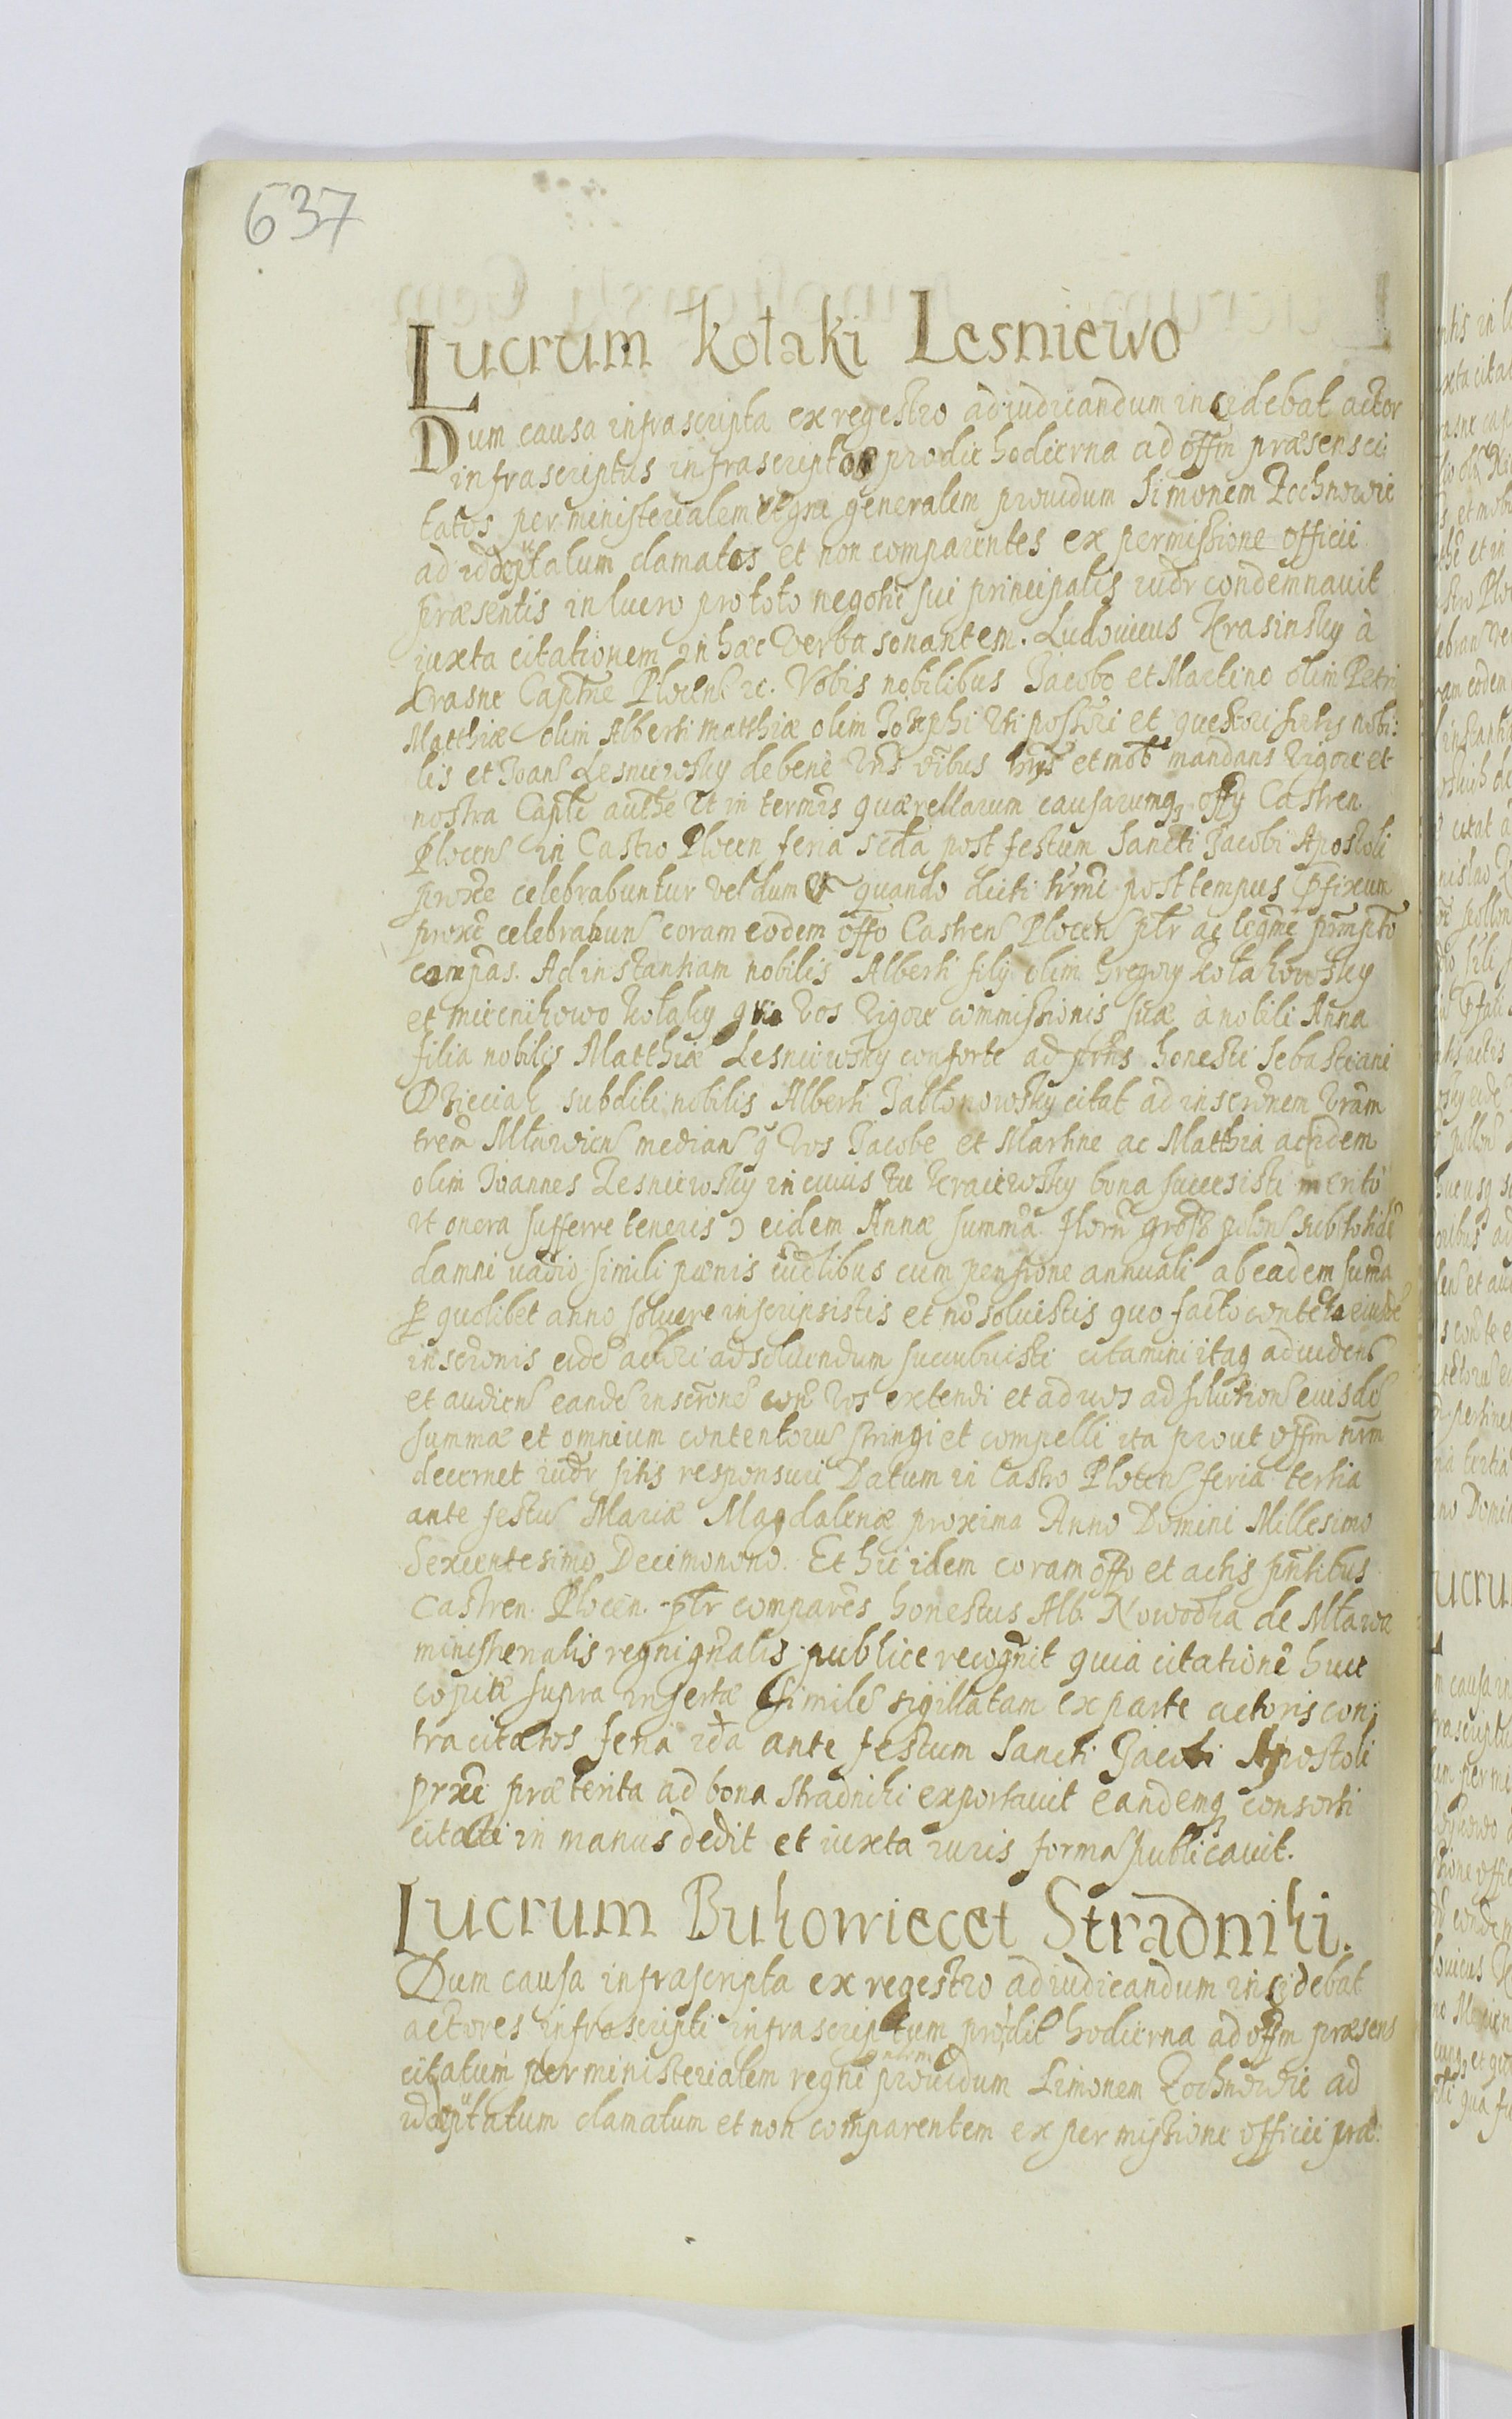 637
Lucrum Kołaki Lesniewo
Dum causa infrascripta ex regestro adiudicandum incidebat actor
infrascriptus infrascriptos pro die hodierna ad offm præsens ci:
tatos per ministerialem regni generalem prouidum Simonem Zochnowic
ad id deputatum clamatos et non comparentes ex permissione officii
præsentis in lucro pro toto negotii sui principalis iudr condemnauit
iuxta citationem in hæc verba sonantem. Ludouicus Krasinsky à
Krasne Captne Plocens ic. Vobis nobilibus Jacobo et Martino olim Petri
Matthiæ olim Alberti Matthiæ olim Josephi uti possri et
lis et Joans Lesniewsky de benè vris oibus hris et mob mandans rigore et
nostra Captli authe ut in termis quærellarum causarumq offy Castren
Plocens in Castro Plocen feria scda post festum Sancti Jacobi Apostoli
proxe celebrabuntur vel dum et quando dicti trmi post tempus pfixum
proxe celebrabuns coram eodem offo Castrens Plocens ptr ac legme
compas. Ad instantiam nobilis Alberti filij olim Gregory Kołakowsky
et mieenikowo Kołaky qui vos vigore commissionis suæ à nobili Anna
filia nobilis Matthiæ Lesniewsky consorte ad prns honesti Sebastiani
Dzieciak subditi nobilis Alberti Jabłonowsky citat ad inscronem vram
trem Mławiens medians q vos Jacobe et Martine ac Matthia ac idem
olim Joannes Lesniewsky in cuius tu Kraiewsky bona successisti meritò
ut onera sufferre teneris eidem Annæ summa floru
damni vadio simili pœnis iudlibus cum pensione annuali ab eadem suma
P quolibet anno soluere inscripsistis et no soluistis quo facto contta eiusde
inscronis eide actori ad soluendum succubuisti citamini itaq ad uidens
et audiens eande inscrone con vos extendi et ad vos ad solutions euisde
summæ et omnium contentorus stringi et compelli ita prout offm nrm
decernet iudr sitis responsuri Datum in Castro Plocens feria tertia
ante festus Mariæ Magdalenæ proxima Anno Domini Millesimo
Sexcentesimo Decimonono. Et hic idem coram offo et actis pntibus
Castren. Plocen. ptr compares honestus Alb. Nowodka de Mława
ministerialis regni gnalis publice recognit quia citatione huic
copiæ supra insertæ similes sigillatam ex parte actoris con:
tra citatos feria 2da ante festum Sancti Jacobi Apostoli
prxe præterita ad bona Stradniki exportauit eandemq consorti
citati in manus dedit et iuxta iuris formas publicauit.
Lucrum Bukowiecet Stradniki.
Dum causa infrascripta ex regestro adiudicandum incidebat
actores infrascripti infrascriptum pro die hodierna ad offm præsens
citatum per ministerialem regni prouidum Simonem Zochnowic ad
id deputatum clamatum et non comparentem ex permissione officii præ: